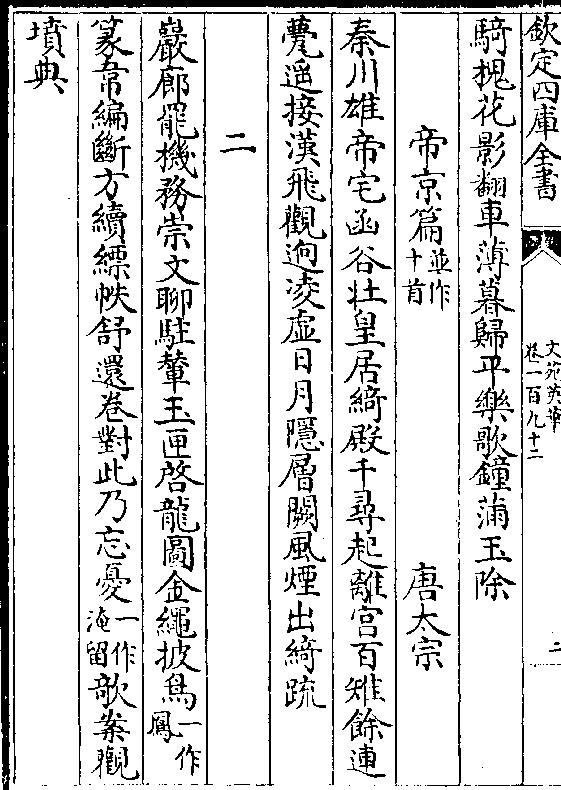 欽定四庫全書
文苑英華
卷一百九十二
二
騎槐花影翻車薄暮歸平樂歌鐘滿玉除
帝京篇並作十首 唐太宗
秦川雄帝宅函谷壯皇居綺殿千尋起離宮百雉餘連
甍遥接漢飛觀迥凌虛日月隱層闕風煙出綺疏
二
巖廊罷機務崇文聊駐輦玉匣啓龍圖金繩披鳥一作鳳
篆韋編斷方續縹帙舒還卷對此乃忘憂一作淹留欹案觀
墳典